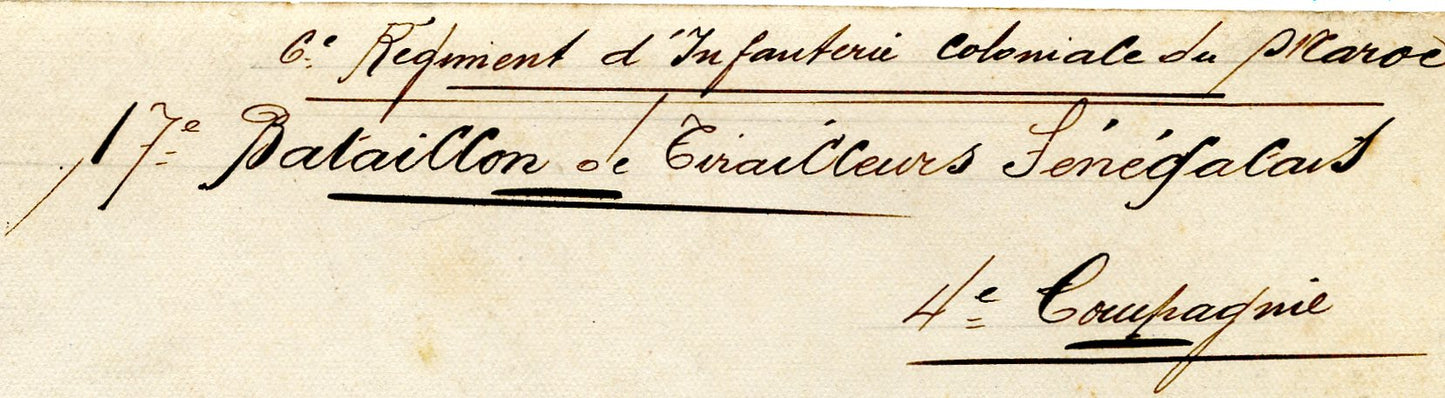 6e Régiment d'Infanterie Coloniale du Maroc
17e Bataillon de Tirailleurs Sénégalais
4e Compagnie